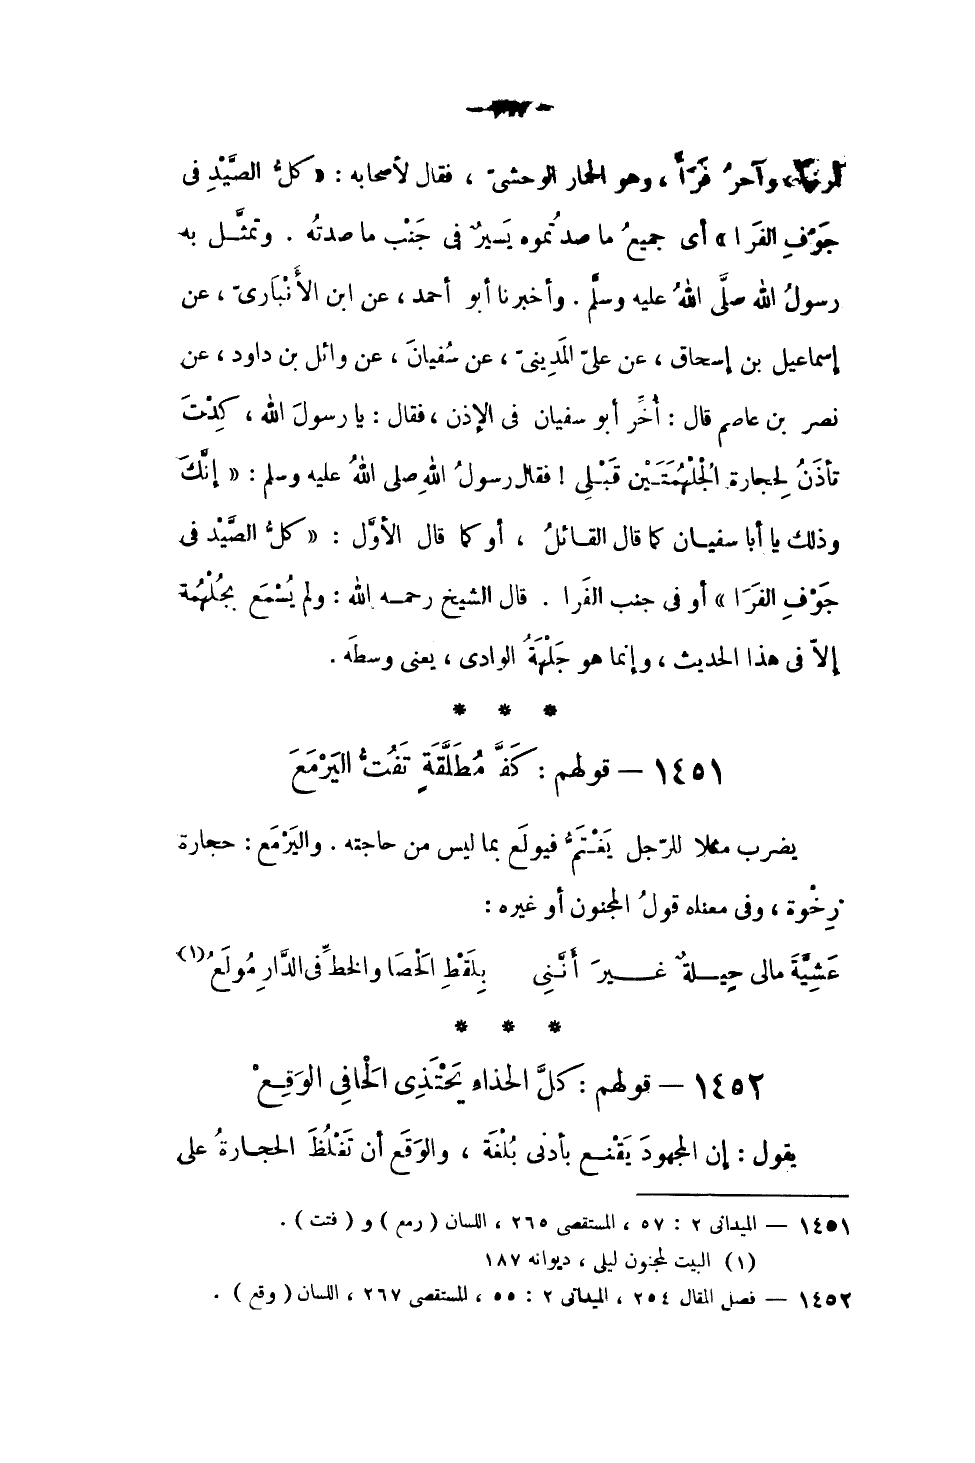 وآخرُ فَرَأً ، وهو الحمار الوحشىّ ، فقال لأصحابه : « كلُّ الصَّيْدِ فى
جَوْفِ الفَرَا » أى جميعُ ما صدتُموه يَسيرٌ فى جَنْب ما صدتُه . وتمثَّل به
رسولُ الله صلَّى اللهُ عليه وسلَّم . وأخبرنا أبو أحمد ، عن ابن الأَنْبَارىّ ، عن
إسماعيل بن إسحاق ، عن علىّ المَدِينىّ ، عن سُفيانَ ، عن وائل بن داود ، عن
نصر بن عاصم قال : أُخِّر أبو سفيان فى الإذن ، فقال : يا رسولَ الله ، كِدْتَ
تأذَنُ لِحجارة الجُلْهُمَتَيْن قَبْلِى ! فقال رسولُ اللهِ صلى اللهُ عليه وسلم : « إنَّكَ
وذلك يا أبا سفيان كما قال القائلُ ، أو كما قال الأوَّل : « كلُّ الصَّيْد فى
جَوْفِ الفَرَا » أو فى جنب الفَرا . قال الشيخ رحمه الله : ولم يُسْمَع بجُلْهُمة
إلاّ فى هذا الحديث ، وإنما هو جَلْهَةُ الوادى ، يعنى وسطَه .
* * *
١٤٥١ — قولهم : كَفَّ مُطَلَّقَةٍ تَفُتُّ اليَرْمَعَ
يضرب مثلا للرّجل يَغْتَمُّ فيولَع بما ليس من حاجته . واليَرْمَع : حجارة
رِخْوة ، وفى معناه قولُ المجنون أو غيره :
عَشِيَّةَ مالى حِيلةٌ غيرَ أَنَّنِى بِلَقْطِ الحَصَا والخطِّ فى الدَّارِ مُولَعُ (١)
* * *
١٤٥٢ — قولهم : كلَّ الحذاءِ يَحْتَذِى الحَافِى الوَقِعْ
يقول : إن المجهودَ يَقْنع بأدنى بُلْغَة ، والوَقَع أن تَغْلُظَ الحجارةُ على
١٤٥١ — الميدانى ٢ : ٥٧ ، المستقصى ٢٦٥ ، اللسان ( رمع ) و ( فتت ) .
(١) البيت لمجنون ليلى ، ديوانه ١٨٧
١٤٥٢ — فصل المقال ٢٥٤ ، الميدانى ٢ : ٥٥ ، المستقصى ٢٦٧ ، اللسان ( وقع ) .